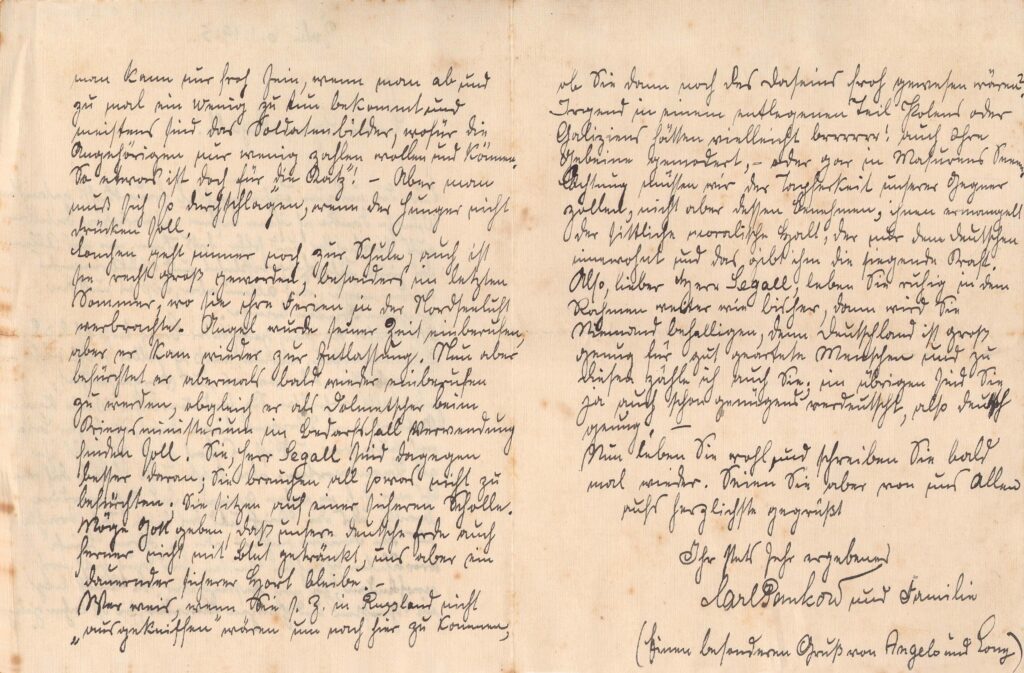 man kann nur froh sein, wenn man ab und
zu mal ein wenig zu tun bekommt und
meistens sind das Soldatenbilder, wofür die
Angehörigen nur wenig zahlen wollen und können.
So etwas ist doch für "die Katz"! – Aber man
muß sich so durchschlagen, wenn der Hunger nicht
drücken soll.
Lonchen geht immer noch zur Schule, auch ist
sie recht groß geworden, besonders im letzten
Sommer, wo sie ihre Ferien in der Nordseeluft
verbrachte. Angel wurde seiner Zeit einberufen,
aber er kam wieder zur Entlassung. Nun aber
befürchtet er abermals bald wieder einberufen
zu werden, obgleich er als Dolmetscher beim
Kriegsministerium im Bedarfsfall Verwendung
finden soll. Sie, Herr Legall sind dagegen
besser daran; Sie brauchen all sowas nicht zu
befürchten. Sie sitzen auf einer sicheren Scholle.
Möge Gott geben, daß unsere deutsche Erde auch
ferner nicht mit Blut getränkt, uns aber ein
dauernder sicherer Hort bleibe. –
Wer weis, wenn Sie s. Z. in Russland nicht
"ausgekniffen" wären um nach hier zu kommen,
ob Sie dann noch des Daseins froh gewesen wären?
Irgend in einem entlegenen Teil Polens oder
Galiziens hätten vielleicht brrrrrr! auch Ihre
Gebeine gemodert, – oder gar in Masurens Seen?
Achtung müssen wir der Tapferkeit unserer Gegner
zollen, nicht aber dessen Benehmen; ihnen ermangelt
der sittliche moralische Halt, der nur dem deutschen
innewohnt und das gibt ihm die siegende Kraft.
Also, lieber Herr Legall, leben Sie ruhig in dem
Rahmen weiter wie bisher, dann wird Sie
Niemand behelligen, denn Deutschland ist groß
genug für gut geartete Menschen und zu
diesen zähle ich auch Sie; im übrigen sind Sie
ja auch schon genügend verdeutscht, also deutsch
genug. –
Nun leben Sie wohl, und schreiben Sie bald
mal wieder. Seien Sie aber von uns Allen
aufs herzlichste gegrüßt
Ihr stets sehr ergebener
Carl Pankow und Familie
(Einen besonderen Gruß von Angelo und Lony)